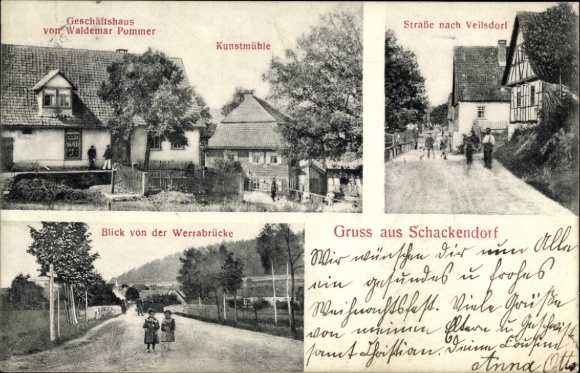 Geschäftshaus
von Waldemar Pommer
Kunstmühle
Straße nach Veilsdorf
Blick von der Werrabrücke
Gruss aus Schackendorf
Wir wünschen Dir nun Alle
ein gesundes u frohes
Weihnachtsfest. Viele Grüße
von meinen Eltern u Geschwist.
samt Christian. Deine Cousine
Anna Otto